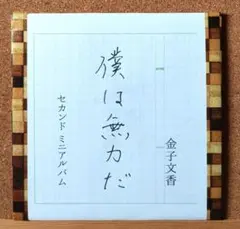 金子文香
僕は無力だ
セカンド ミニアルバム